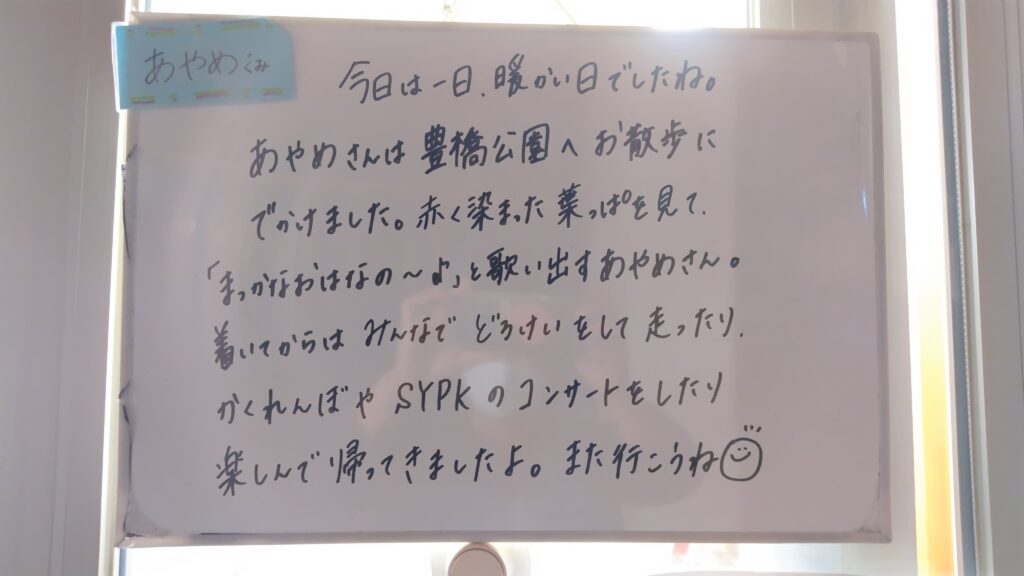 あやめぐみ
今日は一日、暖かい日でしたね。
あやめさんは豊橋公園へお散歩に
でかけました。赤く染まった葉っぱを見て、
「まっかなおはなの～♪」と歌い出すあやめさん。
着いてからはみんなでどろけいをして走ったり、
かくれんぼやSYPKのコンサートをしたり
楽しんで帰ってきましたよ。また行こうね